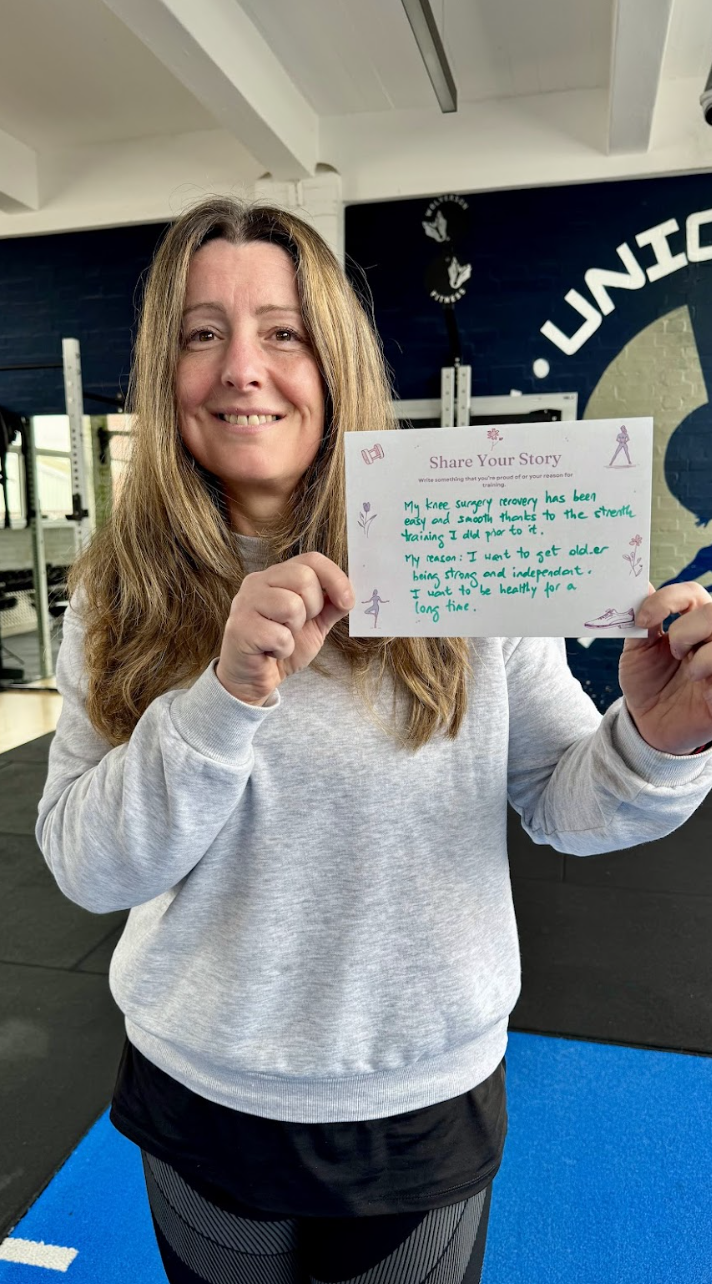 WOLVERSON
FITNESS
UNIO
Share Your Story
Write something that you're proud of or your reason for
training.
My knee surgery recovery has been
easy and smooth thanks to the strenth
training I did prior to it.
My reason: I want to get older
being strong and independent.
I want to be healthy for a
long time.